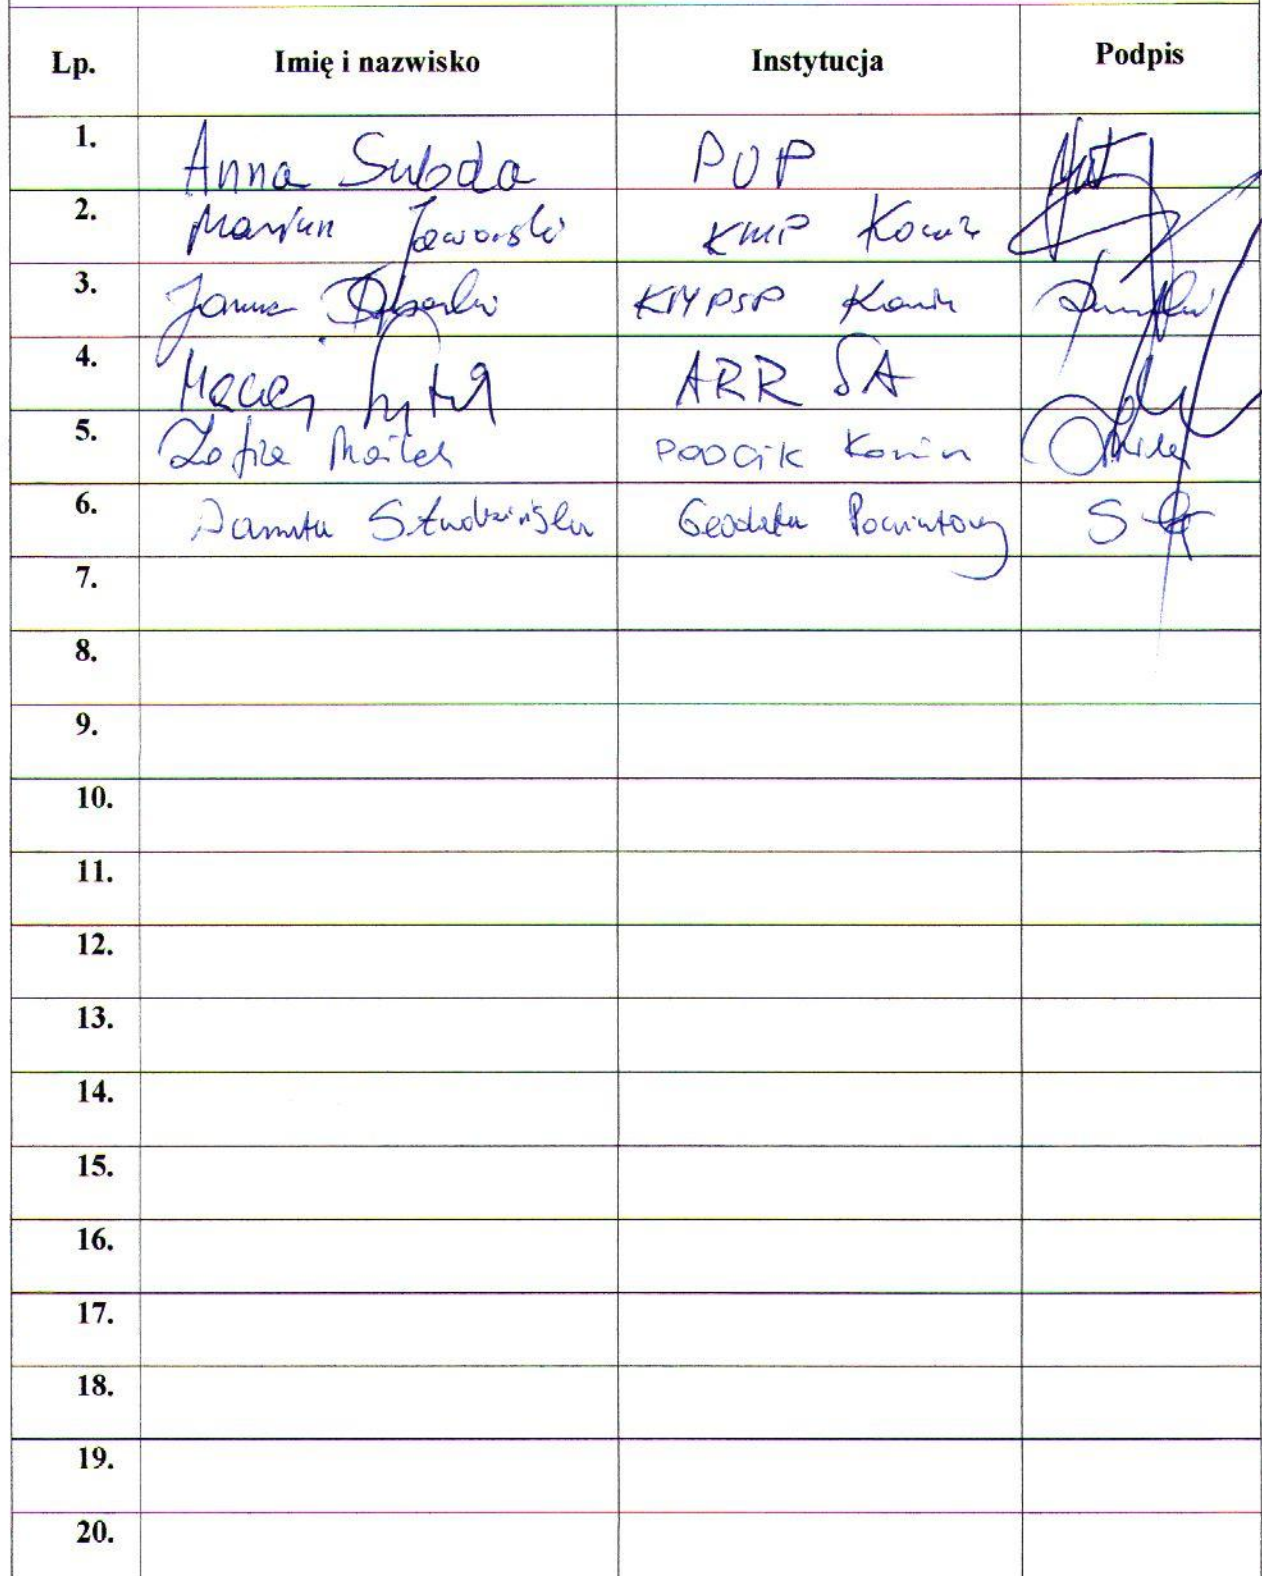 Lp. Imię i nazwisko Instytucja Podpis
1. Anna Suboda PUP
2. Marian Jaworski KMP Konin
3. Janusz KMPSP Konin
4. Maciej Sytek ARR SA
5. Zofia PODGiK Konin
6. Danuta Studzińska Geodeta Powiatowy
7.
8.
9.
10.
11.
12.
13.
14.
15.
16.
17.
18.
19.
20.